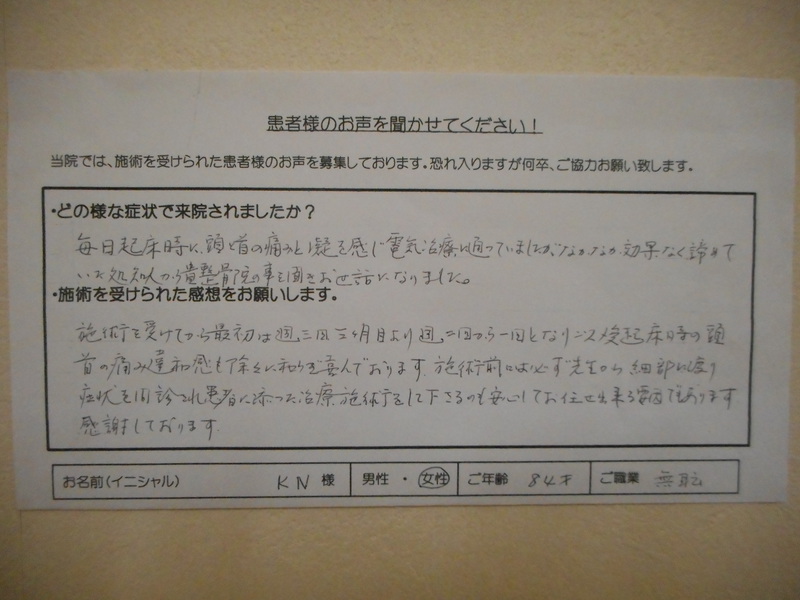 患者様のお声を聞かせてください！
当院では、施術を受けられた患者様のお声を募集しております。恐れ入りますが何卒、ご協力お願い致します。
・どの様な症状で来院されましたか？
毎日起床時に、頭と首の痛みと凝を感じ電気治療に通っていましたが、なかなか効果なく諦めて
いた処知人から貴整骨院の事を聞きお世話になりました。
・施術を受けられた感想をお願いします。
施術を受けてから最初は週、三回三ヶ月目より週、二回から一回となり 起床時の頭
首の痛み違和感も除々に和らぎ喜んでおります。施術前には必ず先生から細部に渡り
症状を問診され患者に添った治療施術をして下さるのも安心してお任せ出来る要因であります
感謝しております。
お名前（イニシャル） KN 様 男性 ・ 女性 ご年齢 84才 ご職業 無職